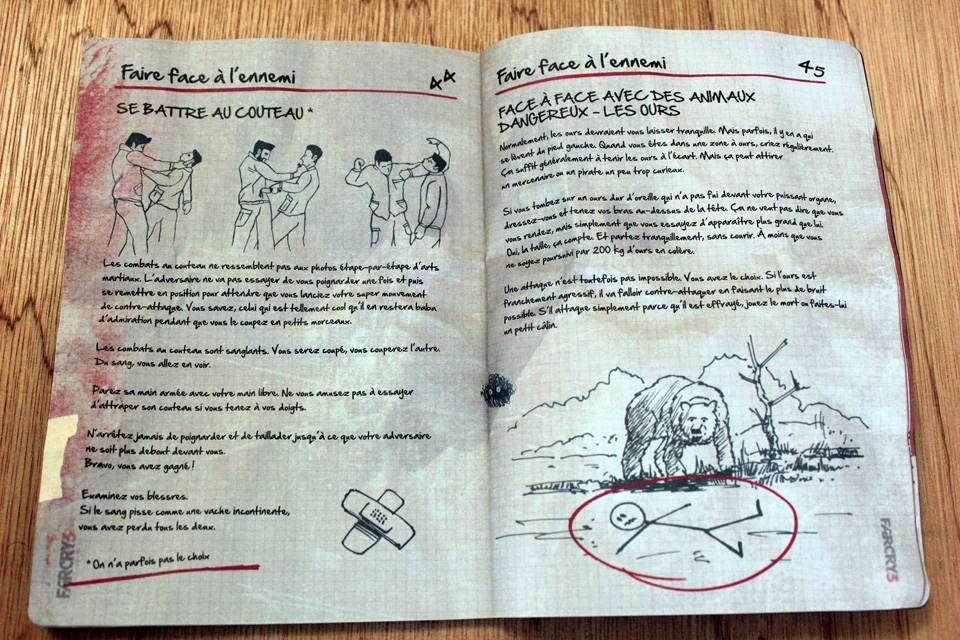 Faire face à l'ennemi
44
SE BATTRE AU COUTEAU *
Les combats au couteau ne ressemblent pas aux photos étape-par-étape d'arts
martiaux. L'adversaire ne va pas essayer de vous poignarder une fois et puis
se remettre en position pour attendre que vous lanciez votre super mouvement
de contre-attaque. Vous savez, celui qui est tellement cool qu'il en restera baba
d'admiration pendant que vous le coupez en petits morceaux.
Les combats au couteau sont sanglants. Vous serez coupé, vous couperez l'autre.
Du sang, vous allez en voir.
Parez sa main armée avec votre main libre. Ne vous amusez pas à essayer
d'attraper son couteau si vous tenez à vos doigts.
N'arrêtez jamais de poignarder et de taillader jusqu'à ce que votre adversaire
ne soit plus debout devant vous.
Bravo, vous avez gagné !
Examinez vos blessres.
Si le sang pisse comme une vache incontinente,
vous avez perdu tous les deux.
* On n'a parfois pas le choix
FARCRY3
Faire face à l'ennemi
45
FACE À FACE AVEC DES ANIMAUX
DANGEREUX - LES OURS
Normalement, les ours devraient vous laisser tranquille. Mais parfois, il y en a qui
se lèvent du pied gauche. Quand vous êtes dans une zone à ours, criez régulièrement.
Ça suffit généralement à tenir les ours à l'écart. Mais ça peut attirer
un mercenaire ou un pirate un peu trop curieux.
Si vous tombez sur un ours dur d'oreille qui n'a pas fui devant votre puissant organe,
dressez-vous et tenez vos bras au-dessus de la tête. Ça ne veut pas dire que vous
vous rendez, mais simplement que vous essayez d'apparaître plus grand que lui
Oui, la taille, ça compte. Et partez tranquillement, sans courir. À moins que vous
ne soyez poursuivi par 200 kg d'ours en colère.
Une attaque n'est toutefois pas impossible. Vous avez le choix. Si l'ours est
franchement agressif, il va falloir contre-attaquer en faisant le plus de bruit
possible. S'il attaque simplement parce qu'il est effrayé, jouez le mort ou faites-lui
un petit câlin.
FARCRY3